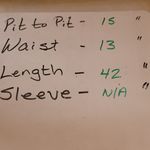 Pit to Pit - 15 "
Waist - 13 "
Length - 42 "
Sleeve - N/A "